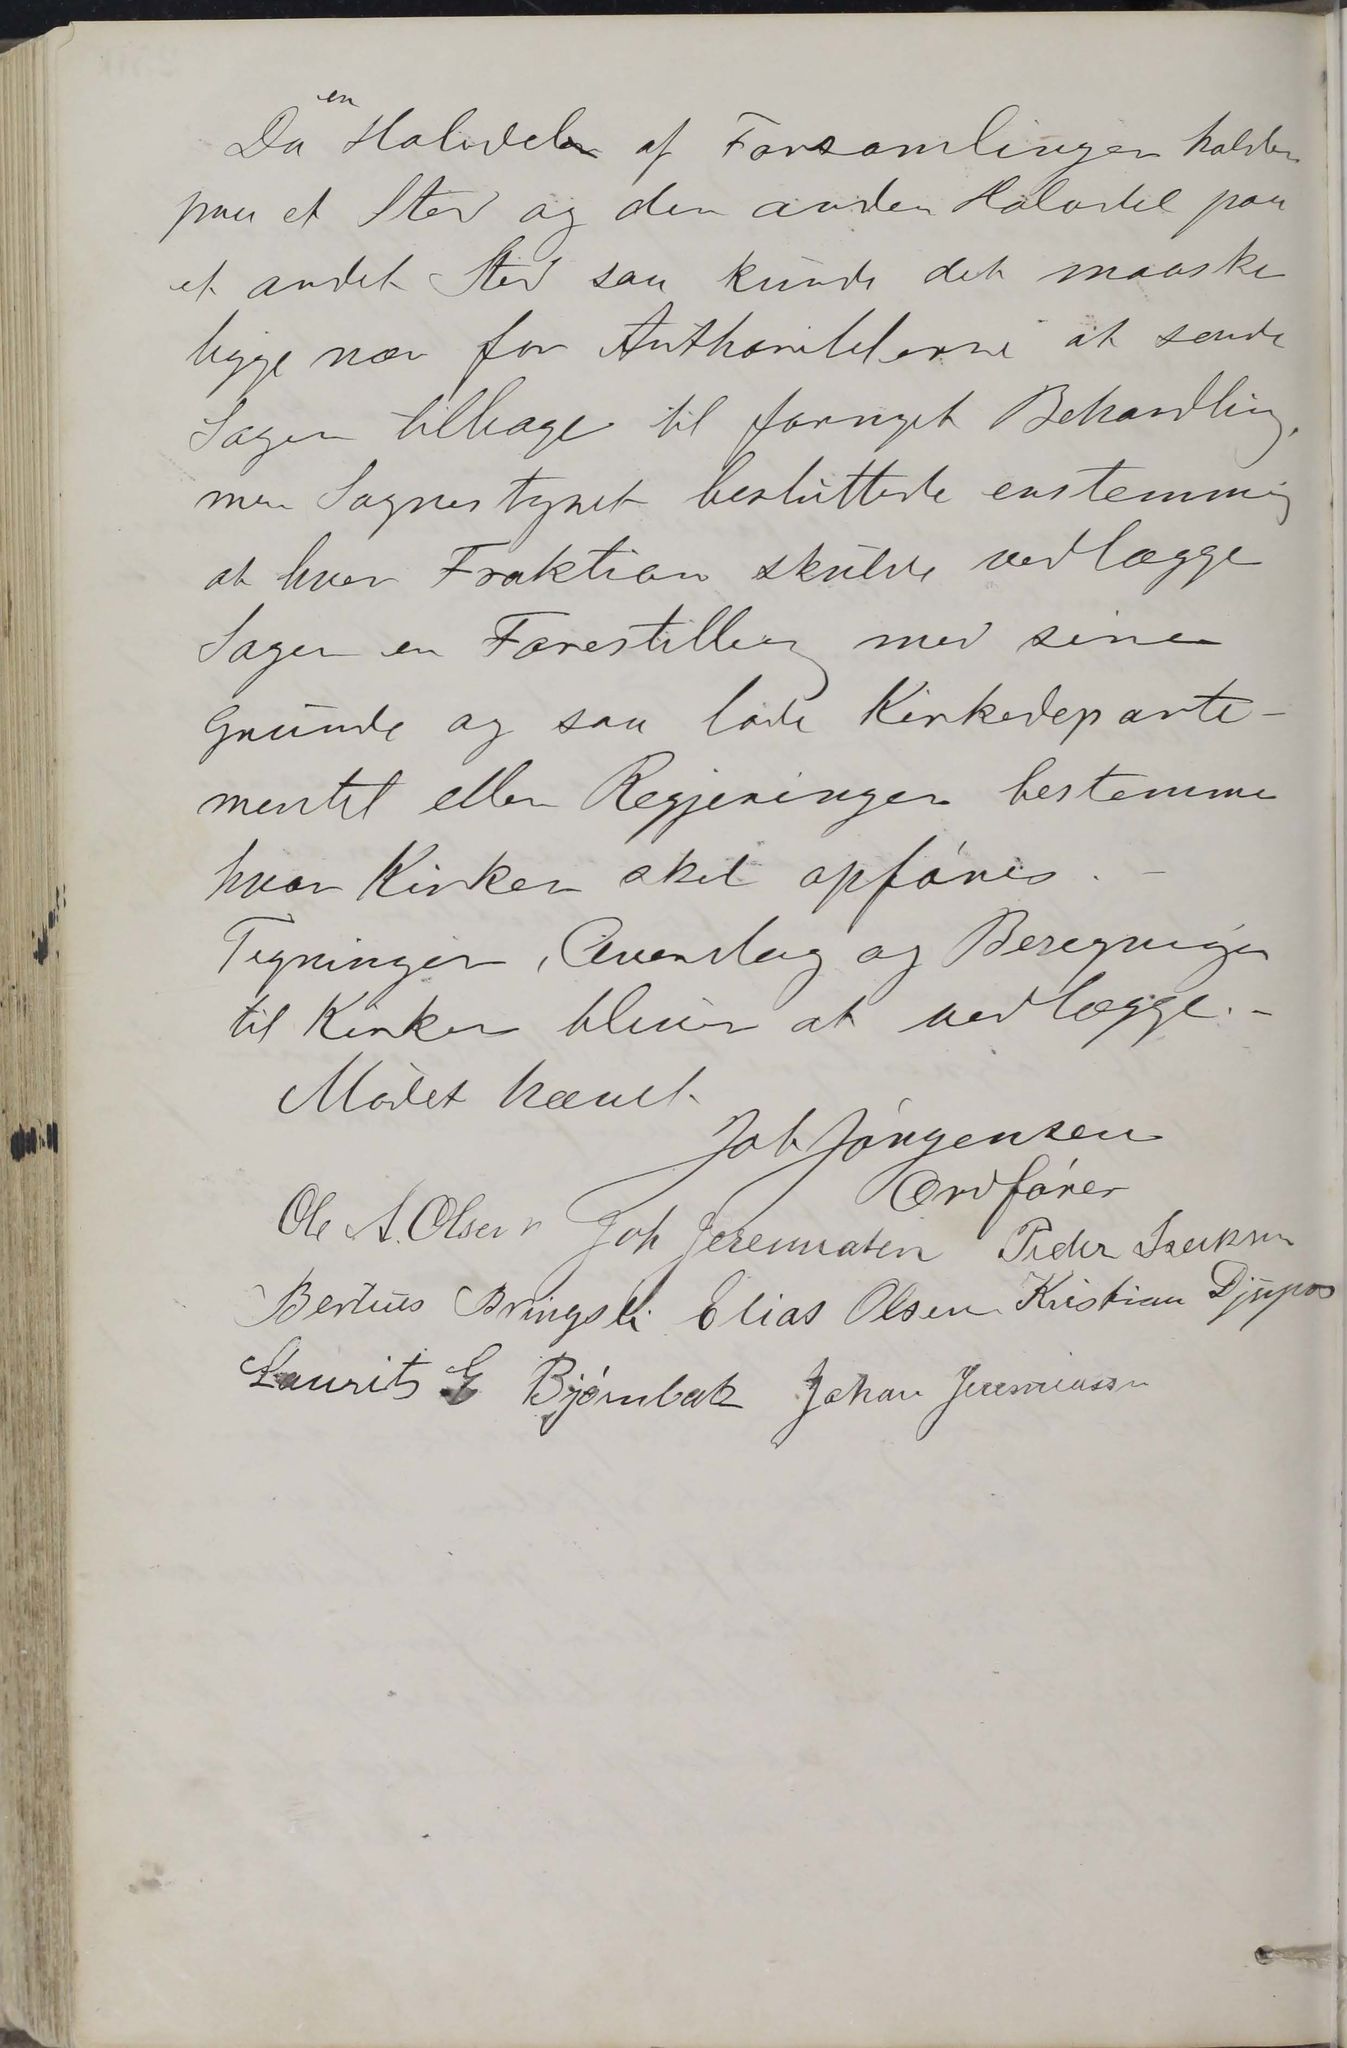 Da en Halvdel af Forsamlingen holder
paa et Sted og den anden Halvdel paa
et andet Sted saa kunde det maaske
ligge nær for Authoriteterne at sende
Sagen tilbage til fornyet Behandling,
men Sognestyret besluttede enstemmig
at hver Fraktion skulde vedlægge
Sagen en Forestilling med sine
Grunde og saa lade Kirkedeparte-
mentet eller Regjeringen bestemme
hvor Kirken skal opføres. -
Tegninger, Overslag og Beregninger
til Kirken bliver at vedlægge. -
Mødet hævet.
Joh Jørgensen
Ordfører
Ole A. Olsen Joh Jeremiasen Peder Isaksen
Bertius Bringsli Elias Olsen Kristian Djupos
Laurits E Bjørnbak Johan Jeremiassen